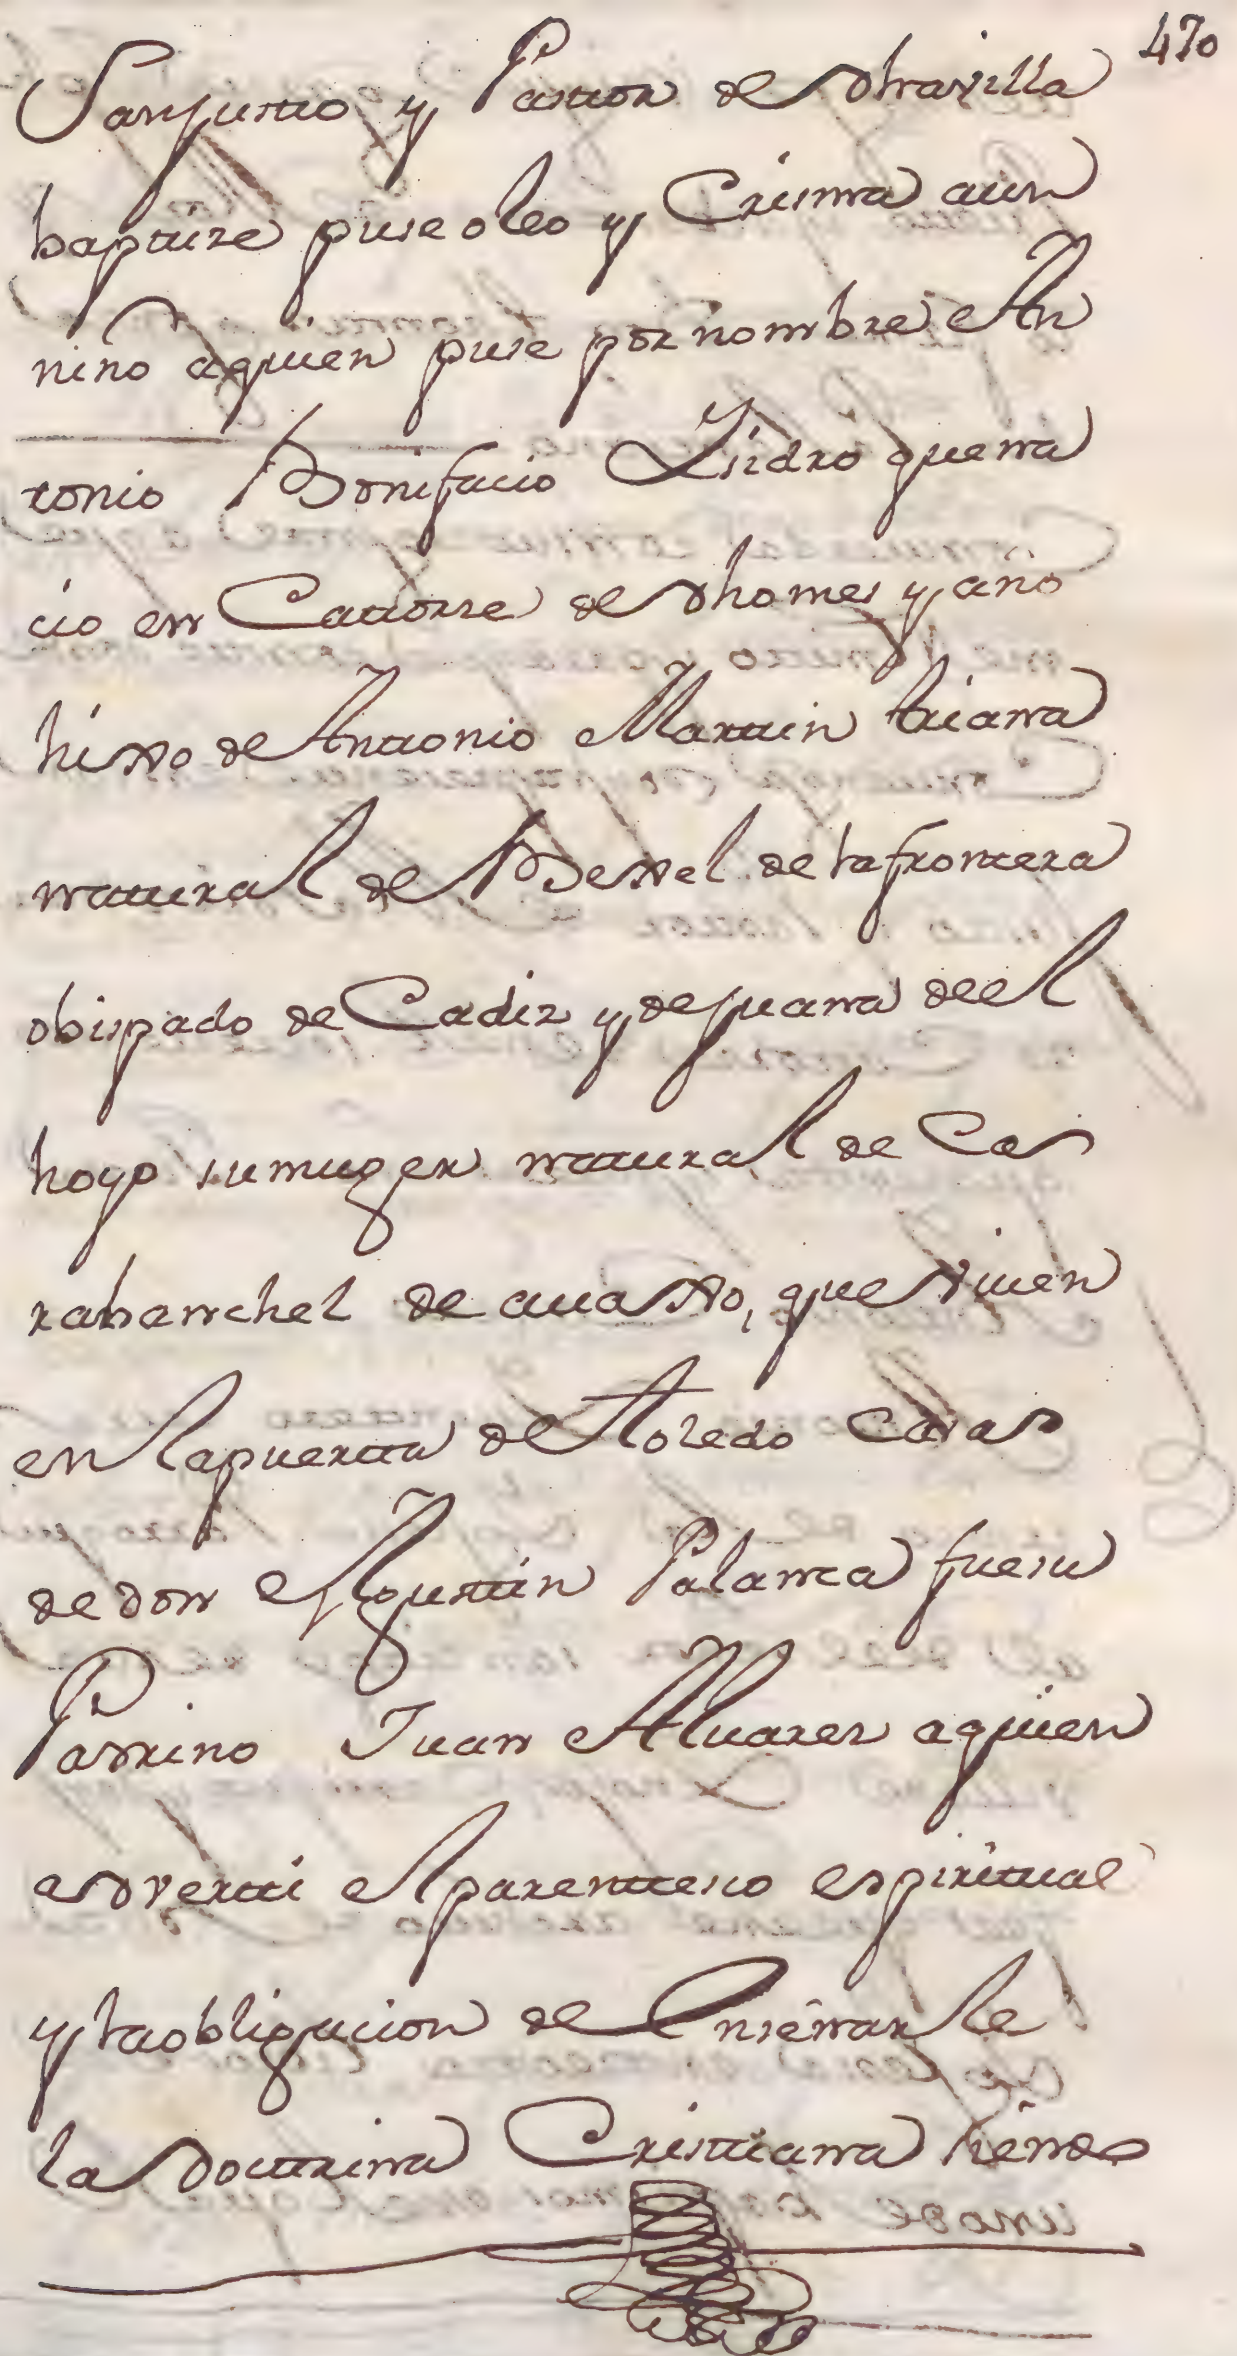 470
Sanjusto y Pastor de dhavilla
baptize puse oleo y Crisma aun
niño aquien puse por nombre An
tonio Bonifacio Ysidro quena
cio en Catorze de dho mes y año
hixo de Antonio Martin triana
natural de Bexel de la frontera
obispado de Cadiz y de juana deel
hoyo su muger natural de Ca
rabanchel de auaxo, que viuen
en la puerta de toledo casas
de don Agustin Palanca fue su
Padrino Juan Aluarez aquien
adverti el parentesco espiritual
y la obligacion de Enseñarle
la doctrina Cristiana siendo